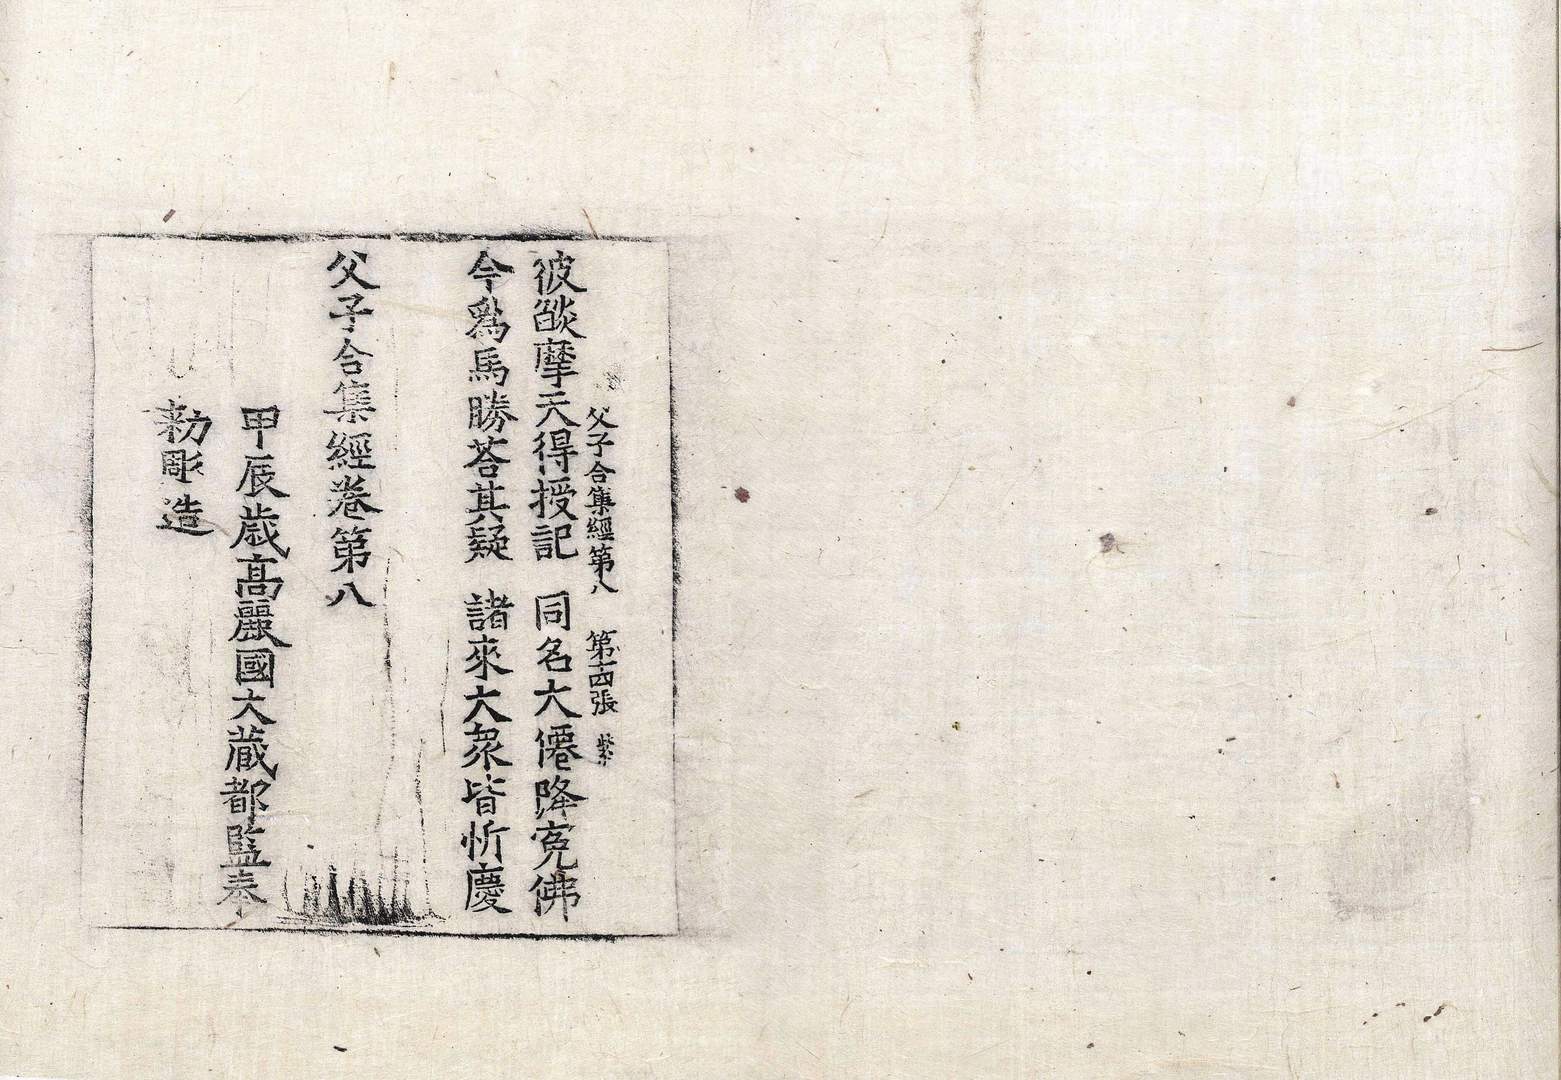 父子合集經第八　第十四張　紫
彼燄摩天得授記　同名大僊降冤佛
今爲馬勝荅其疑　諸來大衆皆忻慶
父子合集經卷第八
甲辰歲高麗國大藏都監奉
勅彫造